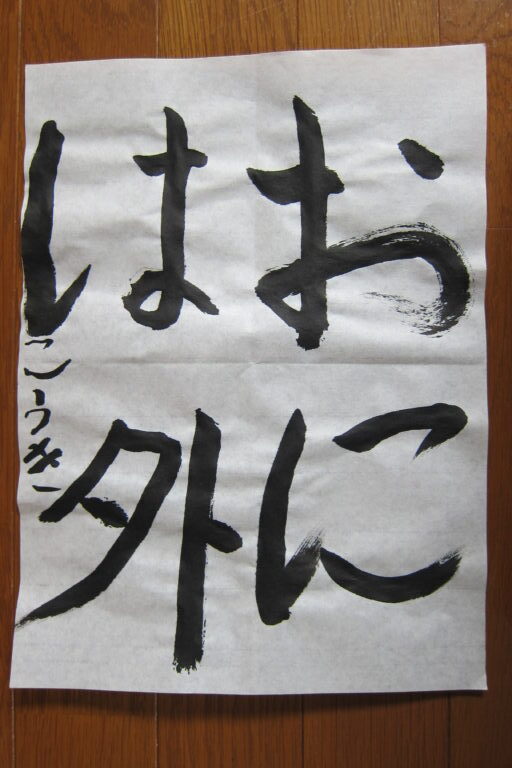 おに
は外
こうき